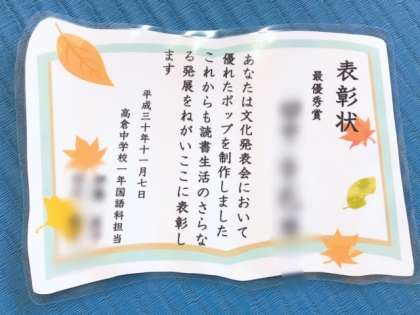 表彰状
最優秀賞
あなたは文化発表会において
優れたポップを制作しました
これからも読書生活のさらな
る発展をねがいここに表彰し
ます
平成三十年十一月七日
高倉中学校一年国語科担当